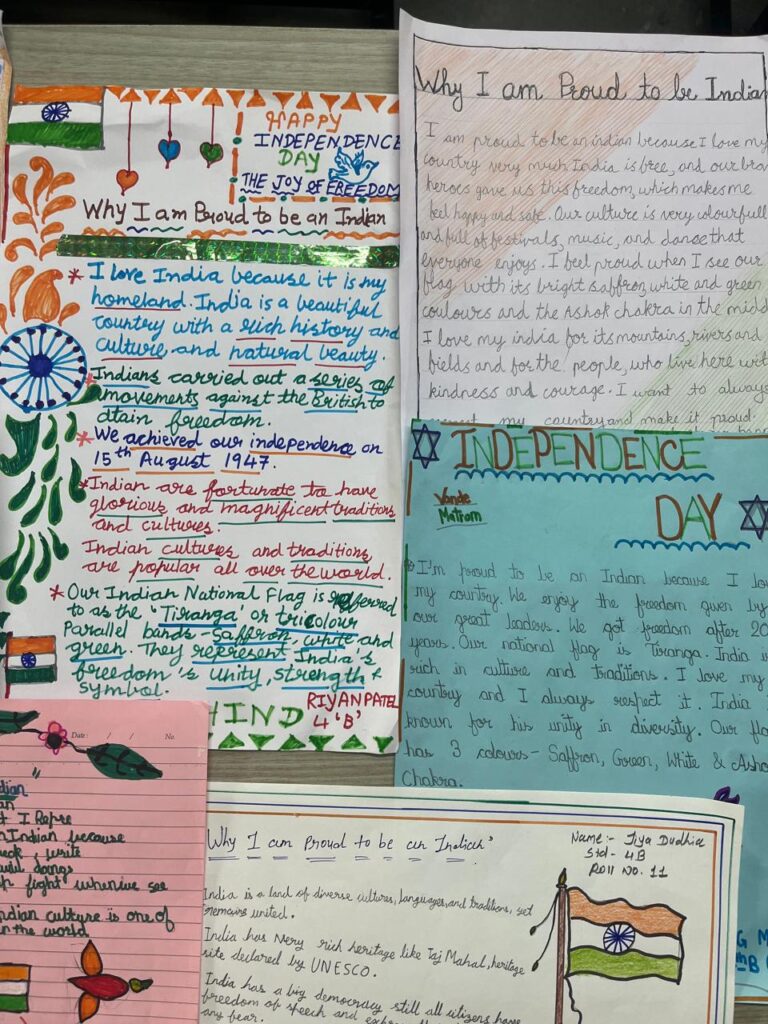 HAPPY
INDEPENDENCE
DAY
THE JOY OF FREEDOM
Why I am Proud to be an Indian
* I love India because it is my
homeland. India is a beautiful
country with a rich history and
culture, and natural beauty.
* Indians carried out a series of
movements against the British to
attain freedom.
* We achieved our independence on
15th August 1947.
* Indian are fortunate to have
glorious and magnificent traditions
and cultures.
Indian cultures and traditions
are popular all over the world.
* Our Indian National Flag is referred
to as the 'Tiranga' or tricolour
Parallel bands - Saffron, white and
green. They represent India's
freedom's unity, strength &
symbol.
HIND
RIYAN PATEL
4 'B'
Why I am Proud to be Indian
I am proud to be an indian because I love my
country very much India is free, and our brav
heroes gave us this freedom, which makes me
feel happy and safe. Our culture is very colourfull
and full of festivals, music, and dance that
everyone enjoys. I feel proud when I see our
flag with its bright saffron, white and green
coulours and the Ashok chakra in the midd
I love my india for its mountains, rivers and
fields and for the people, who live here wit
kindness and courage. I want to always
my country and make it proud.
INDEPENDENCE
DAY
Vande
Matram
I'm proud to be an Indian because I lov
my country. We enjoy the freedom given by
our great leaders. We got freedom after 20
years. Our national flag is Tiranga. India is
rich in culture and traditions. I love my
country and I always respect it. India
known for his unity in diversity. Our fla
has 3 colours - Saffron, Green, White & Asho
Chakra.
Date: / / No.
dian
an
t I Repre
n Indian because
, write
doings
h fight
ndian culture is one of
in the world
Why I am Proud to be an Indian'
Name :- Jiya Dudhia
Std - 4B
Roll No. 11
India is a land of diverse cultures, languages, and traditions, yet
remains united.
India has Very rich heritage like Taj Mahal, heritage
site declared by UNESCO.
India has a big democracy still all citizens have
freedom of speech and
any fear.